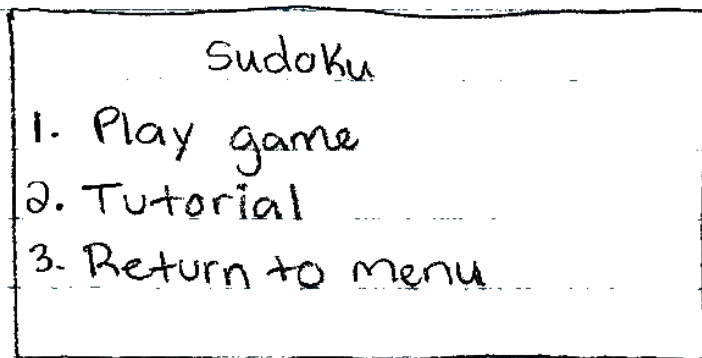 Sudoku
1. Play game
2. Tutorial
3. Return to menu